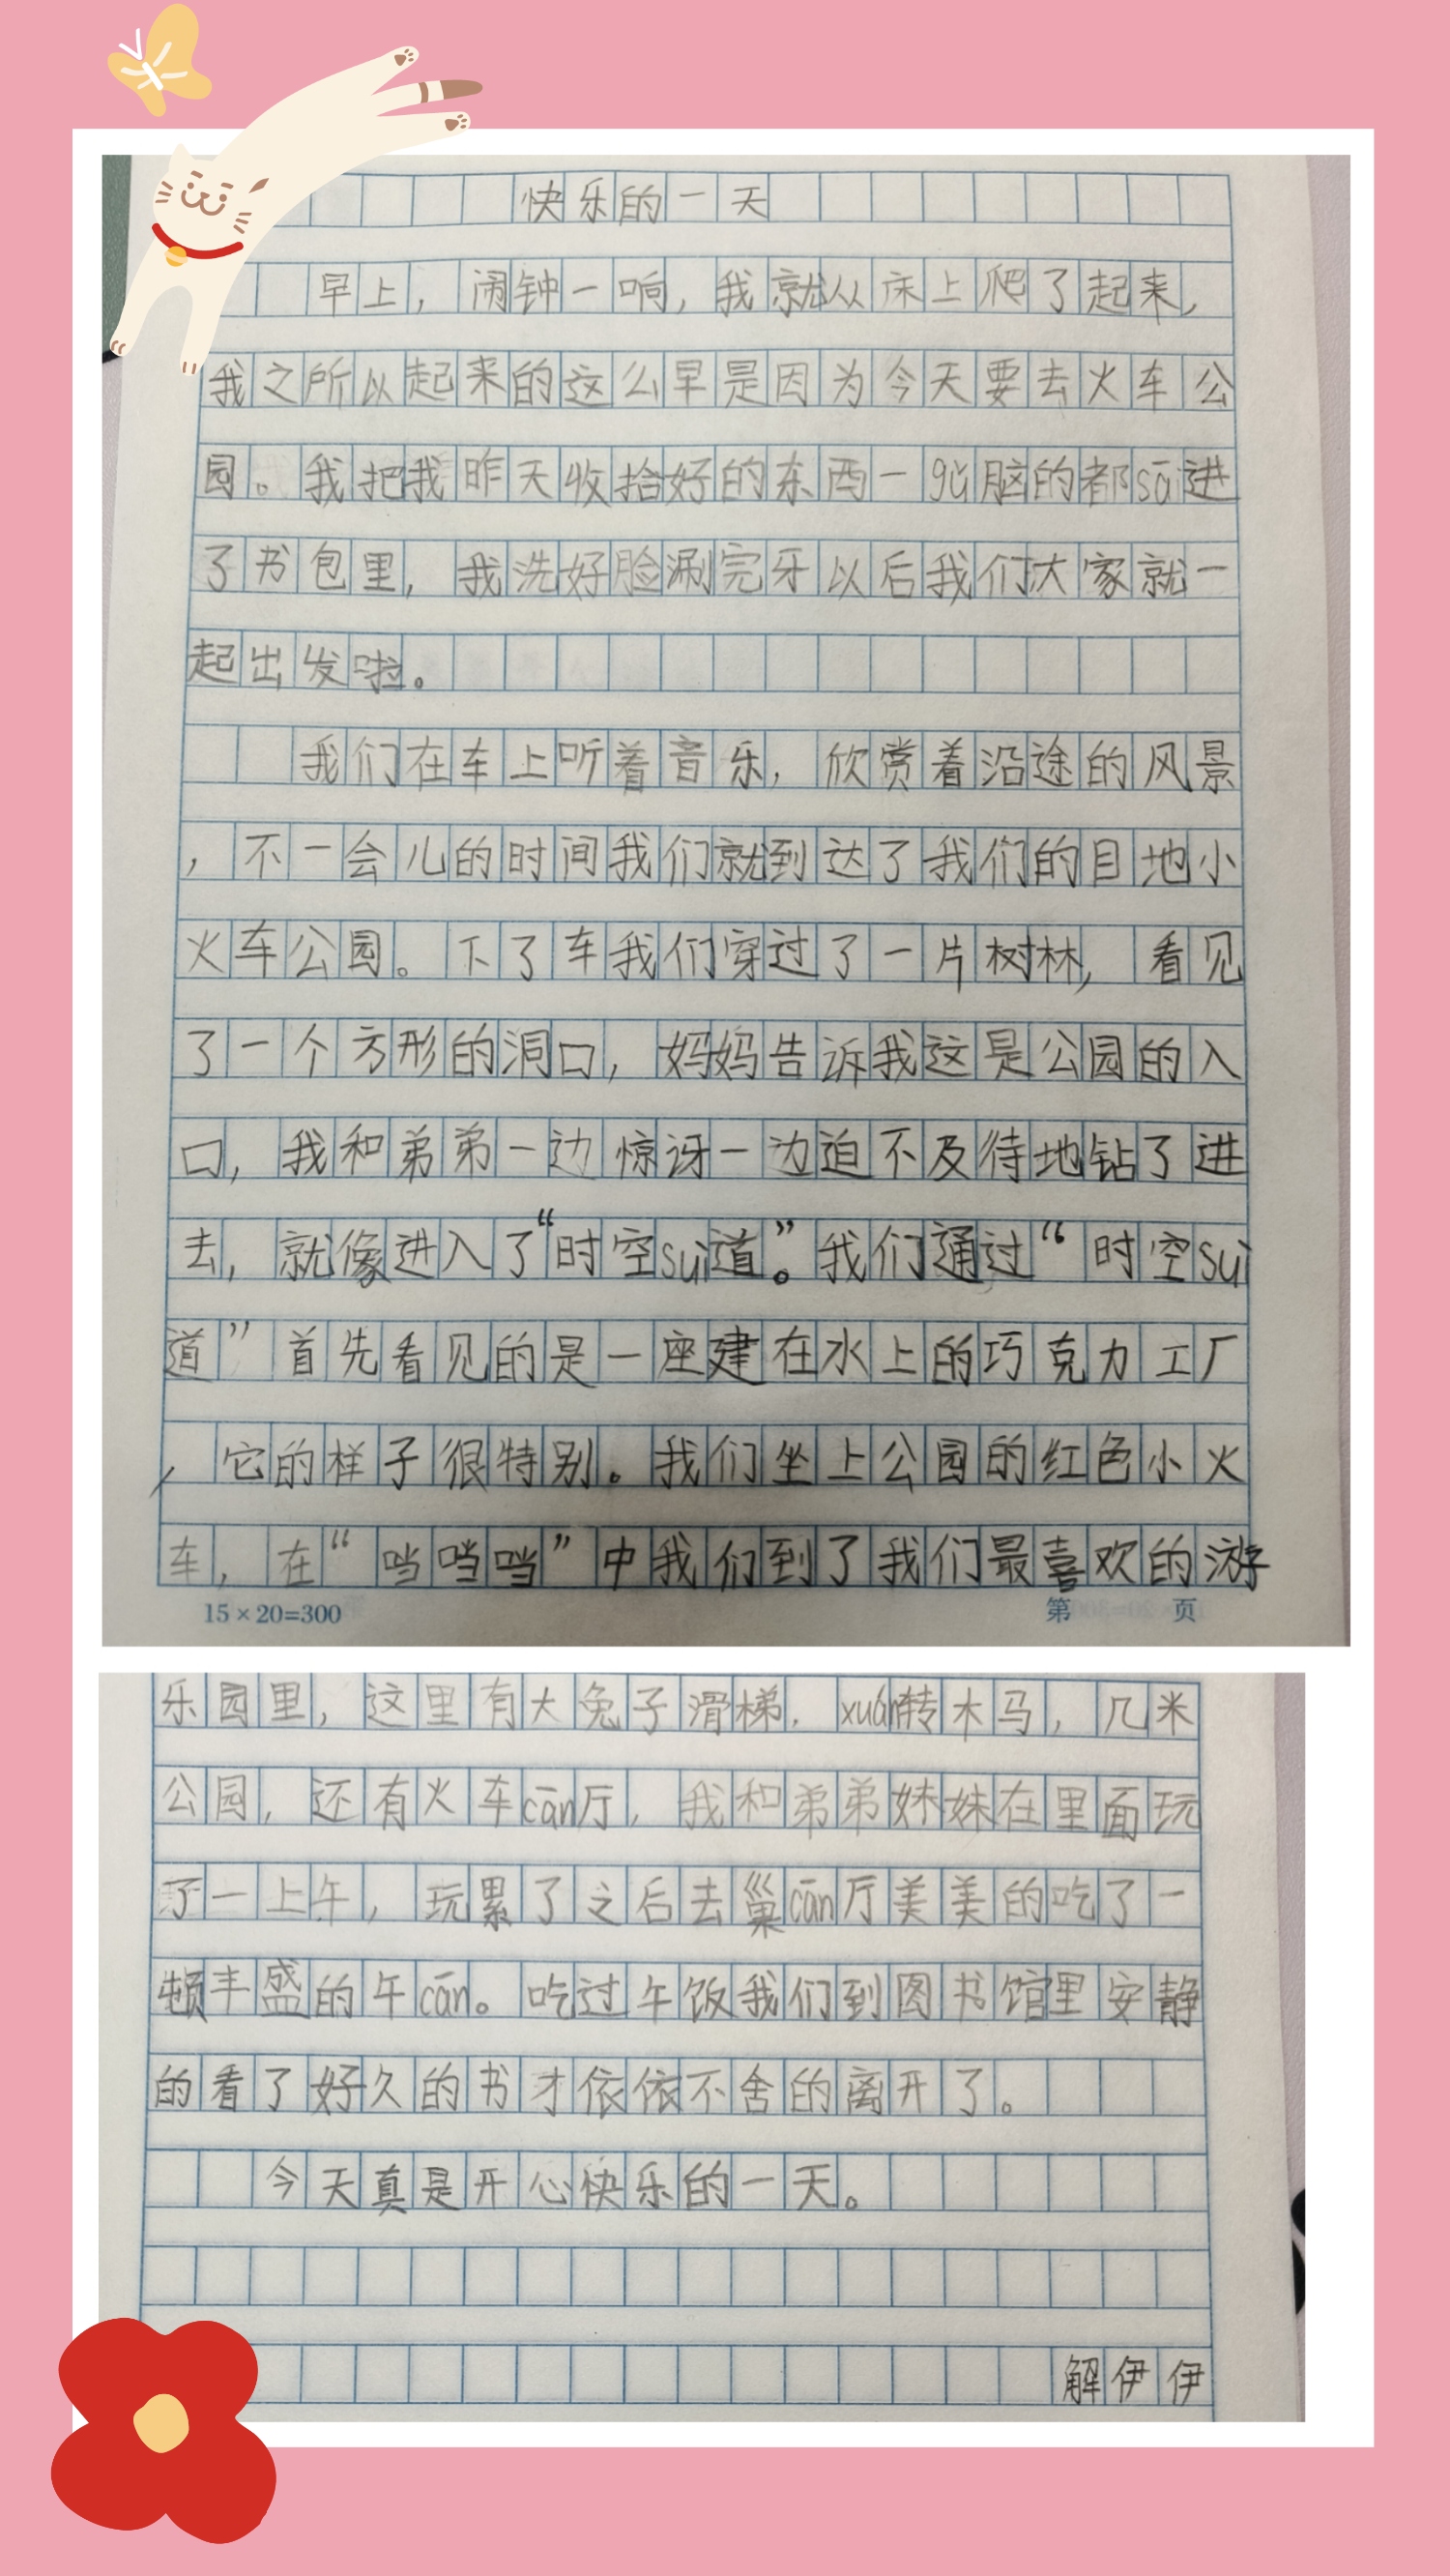 快乐的一天
早上，闹钟一响，我就从床上爬了起来，
我之所以起来的这么早是因为今天要去火车公
园。我把我昨天收拾好的东西一gǔ脑的都sāi进
了书包里，我洗好脸涮完牙以后我们大家就一
起出发啦。
我们在车上听着音乐，欣赏着沿途的风景
，不一会儿的时间我们就到达了我们的目地小
火车公园。下了车我们穿过了一片树林，看见
了一个方形的洞口，妈妈告诉我这是公园的入
口，我和弟弟一边惊讶一边迫不及待地钻了进
去，就像进入了“时空suì道”。我们通过“时空suì
道”首先看见的是一座建在水上的巧克力工厂
，它的样子很特别。我们坐上公园的红色小火
车，在“当当当”中我们到了我们最喜欢的游
15×20=300 第 页
乐园里，这里有大兔子滑梯，xuán转木马，几米
公园，还有火车cān厅，我和弟弟妹妹在里面玩
了一上午，玩累了之后去巢cān厅美美的吃了一
顿丰盛的午cān。吃过午饭我们到图书馆里安静
的看了好久的书才依依不舍的离开了。
今天真是开心快乐的一天。
解伊伊